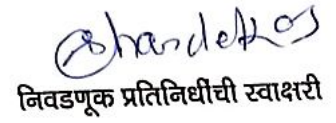 निवडणूक प्रतिनिधींची स्वाक्षरी